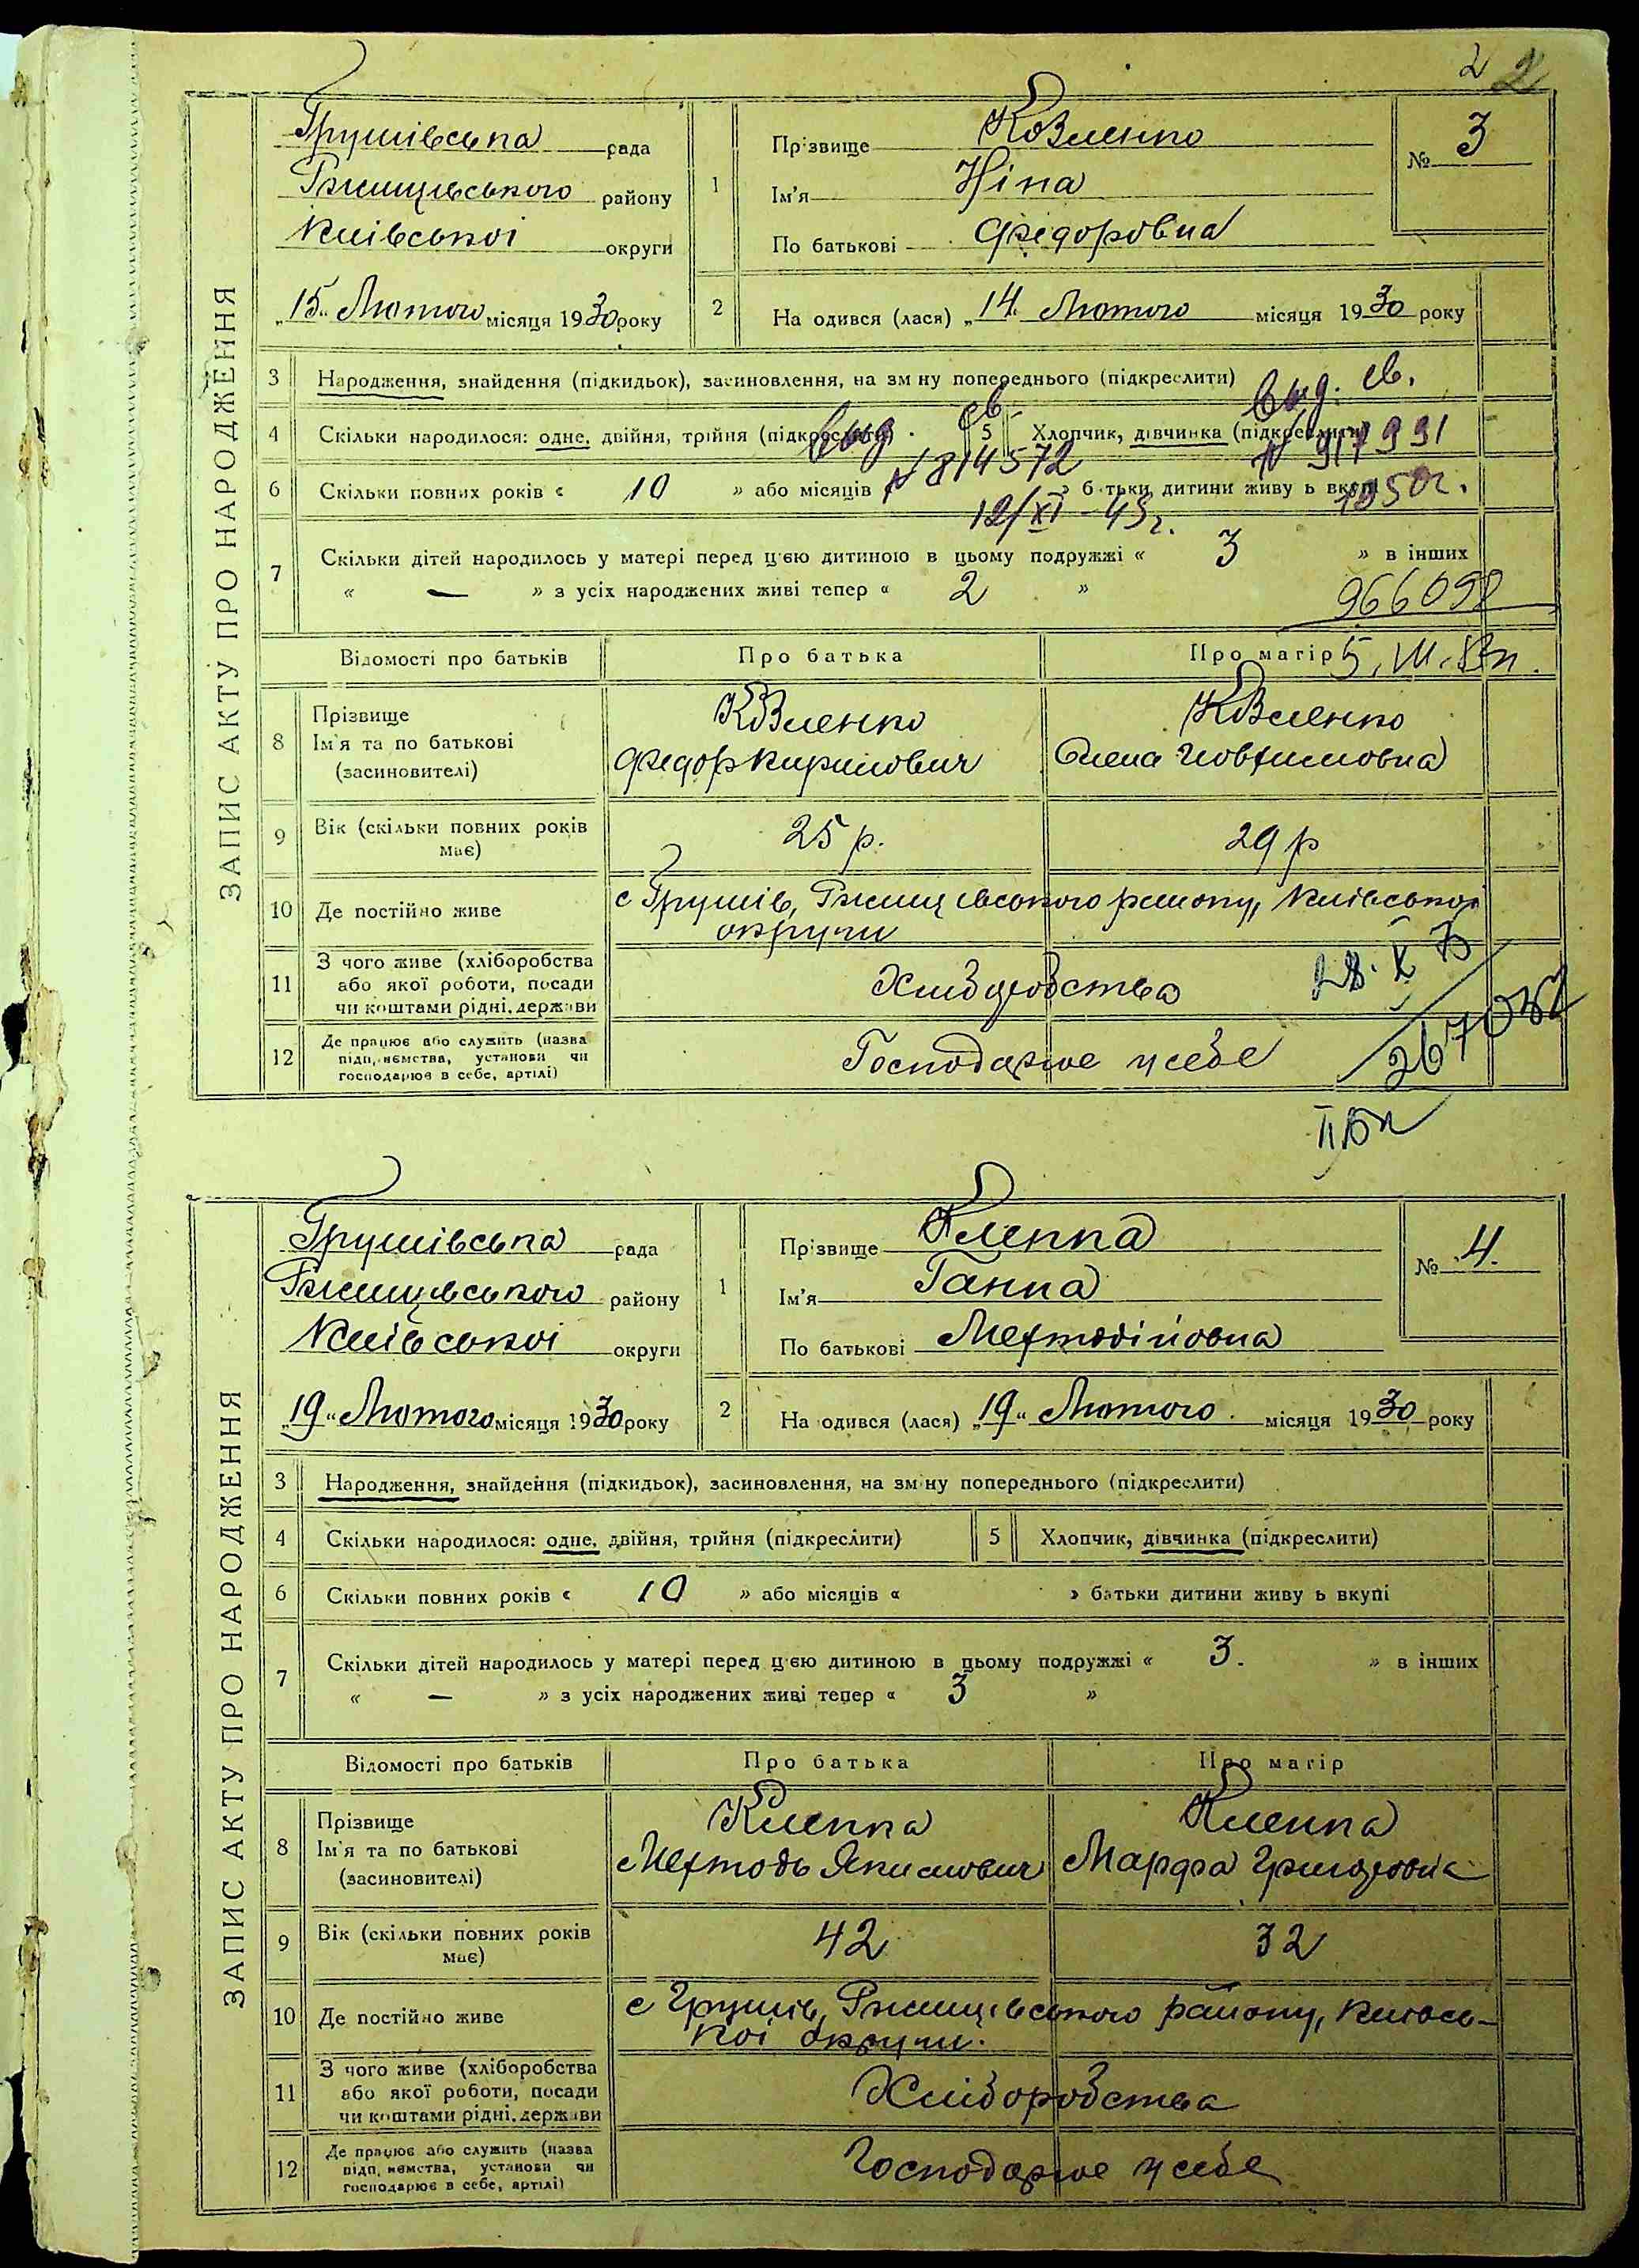 2 2
ЗАПИС АКТУ ПРО НАРОДЖЕННЯ
Грушівська рада
Ржищівського району
Київської округи
„15“ Лютого місяця 1930 року
1 Прізвище Козленко
Ім'я Ніна
По батькові Федоровна
№ 3
2 На одився (лася) „14“ Лютого місяця 1930 року
3 Народження, знайдення (підкидьок), засиновлення, на зм ну попереднього (підкреслити)
вид. св.
4 Скільки народилося: одне, двійня, трійня (підкреслити)
вид св.
5 Хлопчик, дівчинка (підкреслити)
N 917991
N 814572
6 Скільки повних років « 10 » або місяців « » б тьки дитини живу ь вкупі
1950г.
12/XI-45г.
7 Скільки дітей народилось у матері перед цією дитиною в цьому подружжі « 3 » в інших
« — » з усіх народжених живі тепер « 2 »
966092
Відомості про батьків Про батька Про матір
8 Прізвище
Ім'я та по батькові
(засиновителі)
Козленко
Федор Кирилович
Козленко
Олена
9 Вік (скільки повних років має)
25 р. 29 р
10 Де постійно живе
с Грушів, Ржищівського району, Київської
округи
11 З чого живе (хліборобства
або якої роботи, посади
чи коштами рідні, держави
Хліборобства
12 Де працює або служить (назва
підп, иємства, установи чи
господарює в себе, артілі)
Господарює у себе
ЗАПИС АКТУ ПРО НАРОДЖЕННЯ
Грушівська рада
Ржищівського району
Київської округи
„19“ Лютого місяця 1930 року
1 Прізвище Клеппа
Ім'я Ганна
По батькові Мефтодійовна
№ 4.
2 На одився (лася) „19“ Лютого місяця 1930 року
3 Народження, знайдення (підкидьок), засиновлення, на зм ну попереднього (підкреслити)
4 Скільки народилося: одне, двійня, трійня (підкреслити)
5 Хлопчик, дівчинка (підкреслити)
6 Скільки повних років « 10 » або місяців « » батьки дитини живу ь вкупі
7 Скільки дітей народилось у матері перед цією дитиною в цьому подружжі « 3. » в інших
« — » з усіх народжених живі тепер « 3 »
Відомості про батьків Про батька Про матір
8 Прізвище
Ім'я та по батькові
(засиновителі)
Клеппа
Мефтодь Якимович
Клеппа
Марфа
9 Вік (скільки повних років має)
42 32
10 Де постійно живе
с Грушів, Ржищівського району, Київсь-
кої округи.
11 З чого живе (хліборобства
або якої роботи, посади
чи коштами рідні, держави
Хліборобства
12 Де працює або служить (назва
підп, иємства, установи чи
господарює в себе, артілі)
Господарює у себе